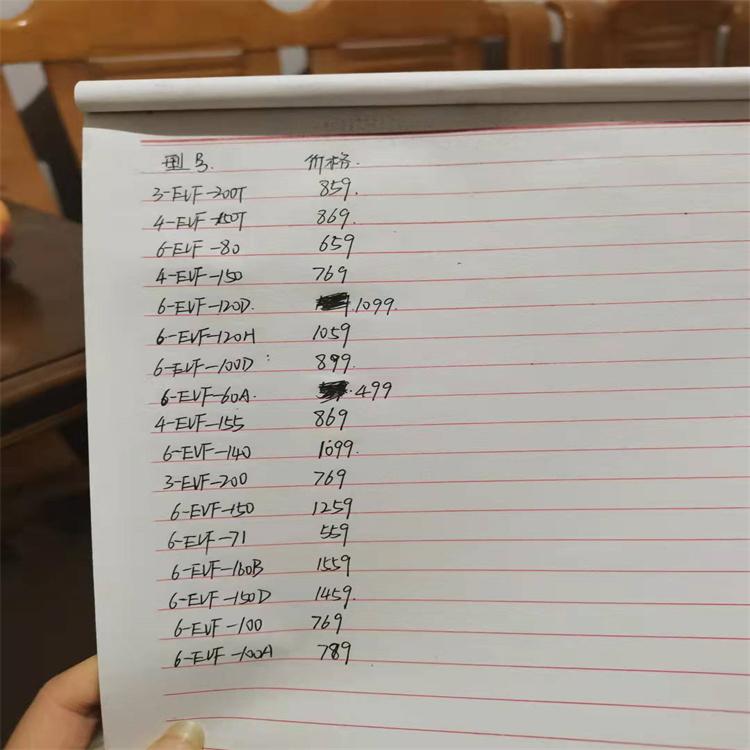 型号. 价格.
3-EVF-200T 859.
4-EVF-150T 869.
6-EVF-80 659
4-EVF-150 769
6-EVF-120D. 1099.
6-EVF-120H 1059
6-EVF-100D 899.
6-EVF-60A. 499
4-EVF-155 869
6-EVF-140 1099.
3-EVF-200 769
6-EVF-150 1259
6-EVF-71 559
6-EVF-160B 1559
6-EVF-150D 1459.
6-EVF-100 769
6-EVF-100A 789